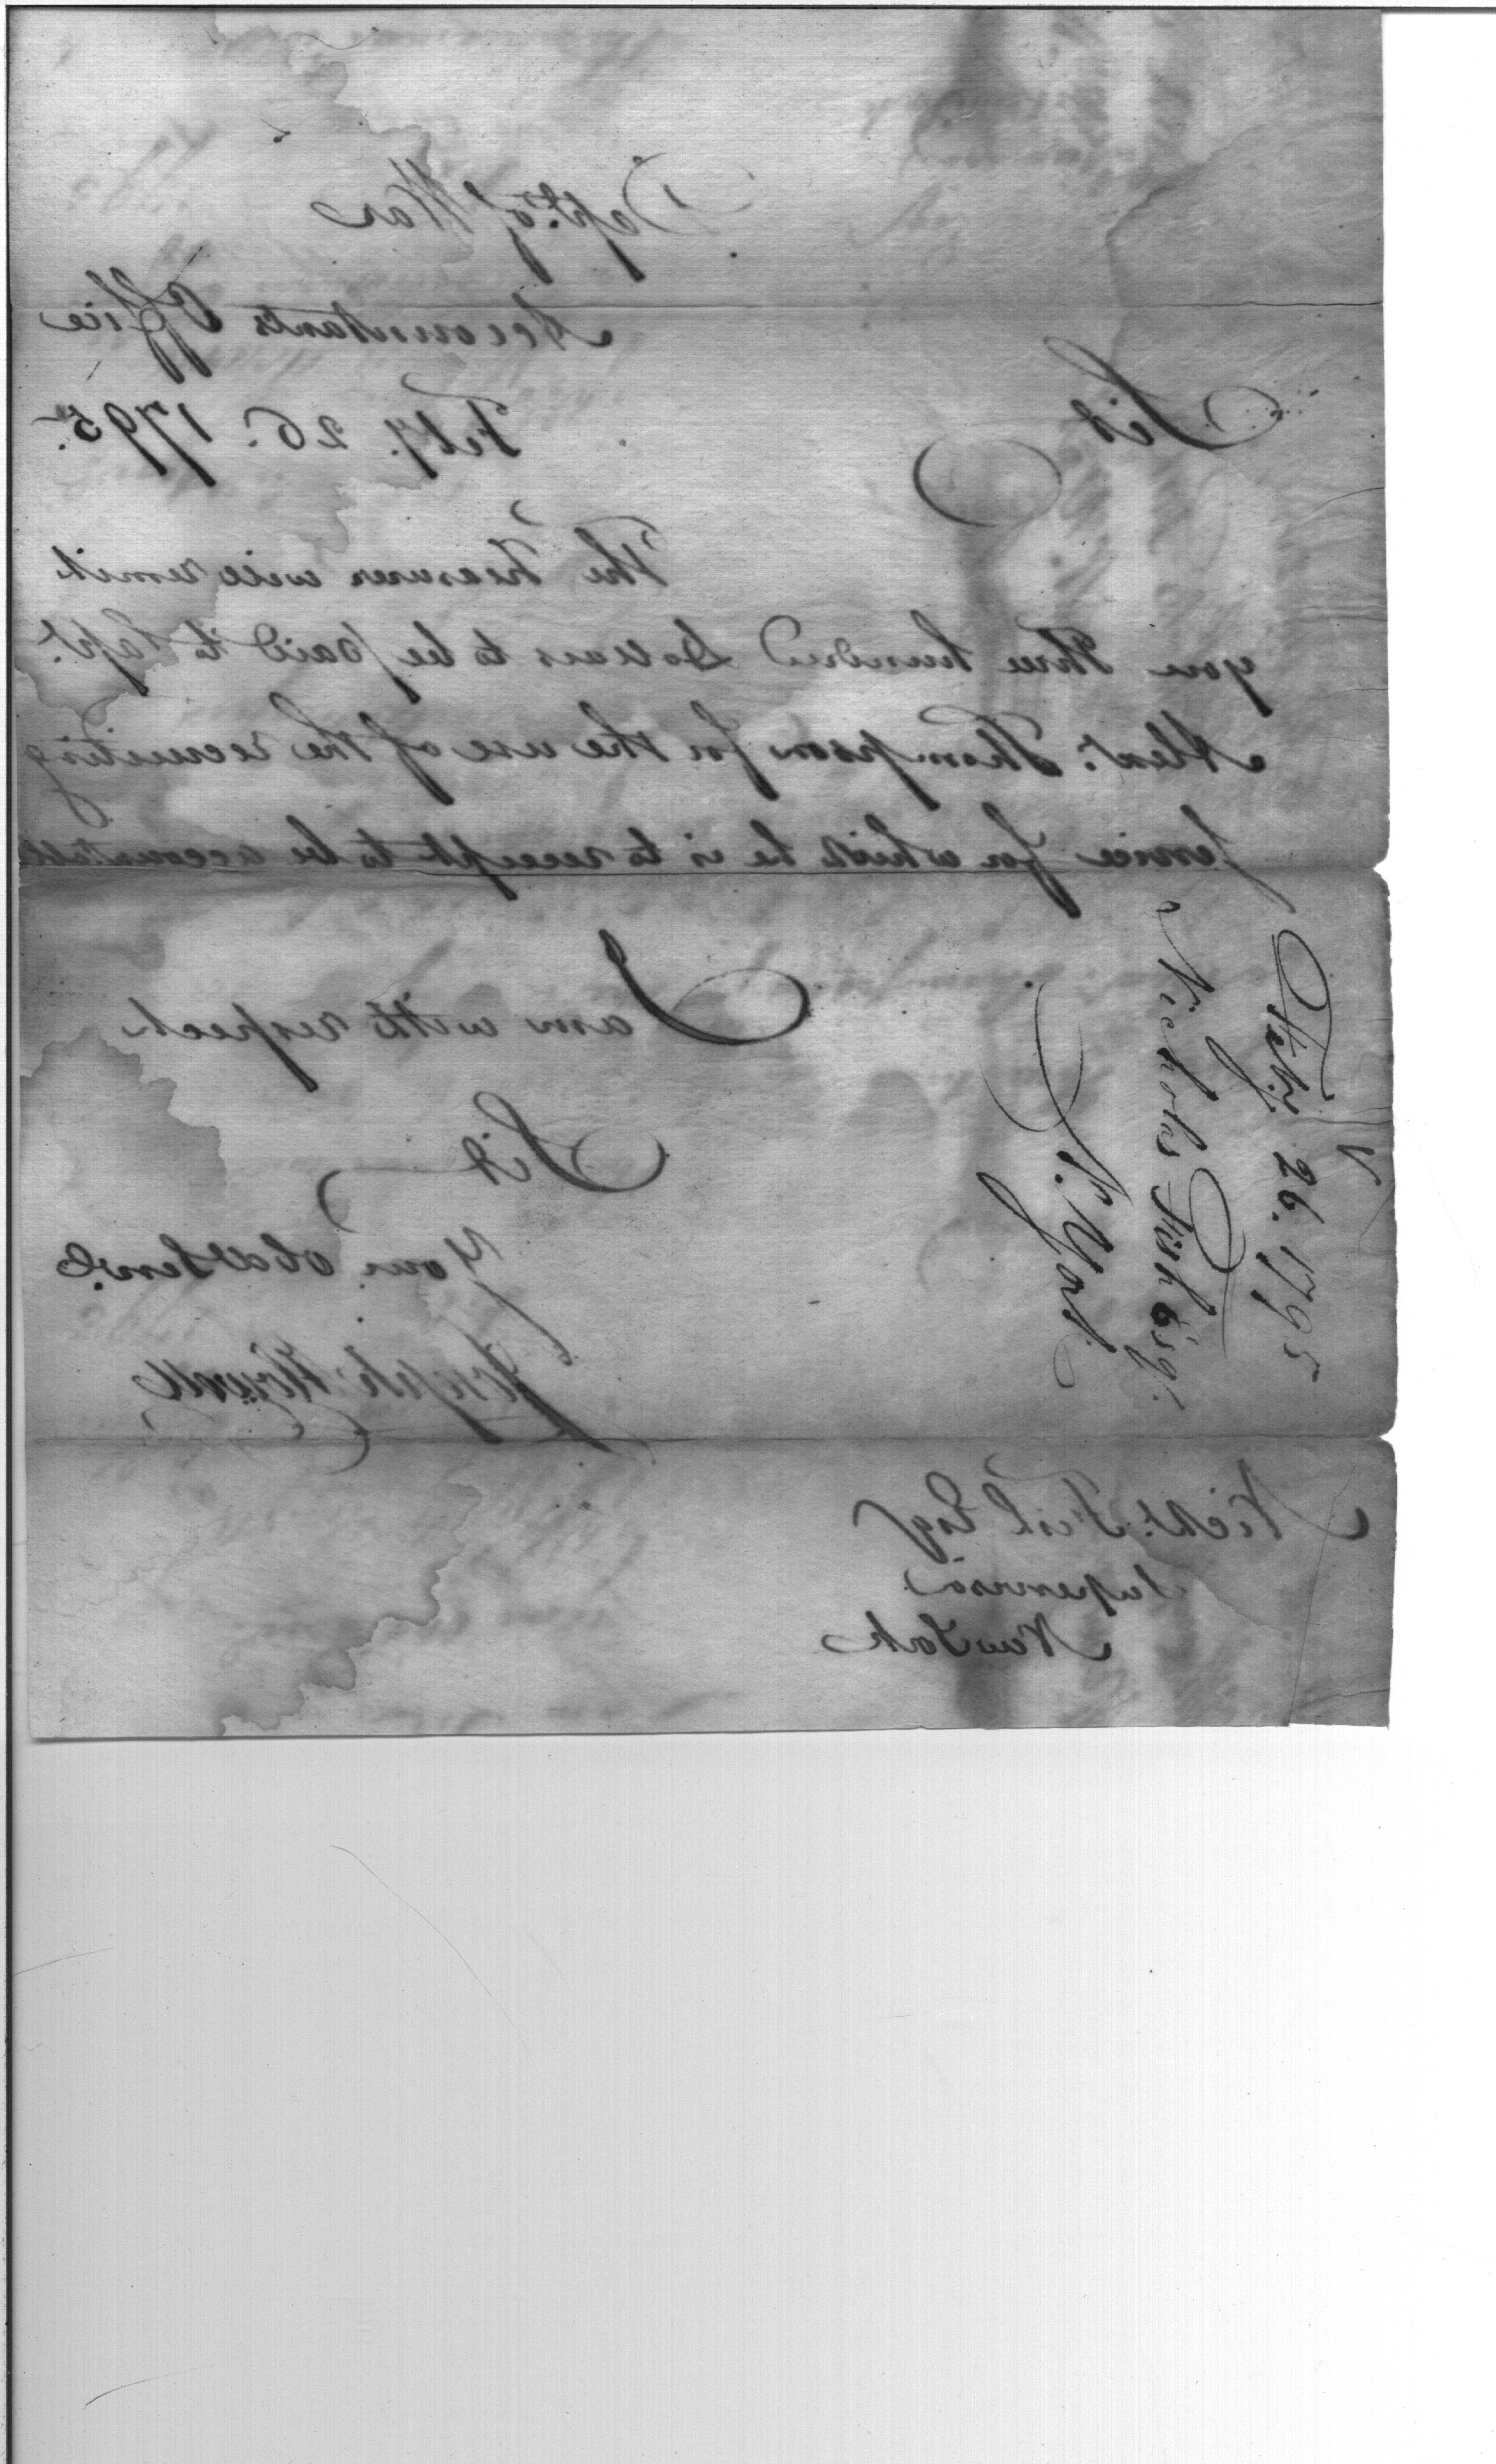 Dept. of War
Accountants Office
Feby. 26. 1795.
Sir
The Treasurer will remit
you Three hundred Dollars to be paid to Capt.
Alexr. Thompson for the use of the recruiting
service for which he is to receipt to be accountable
I am with respect
Sir
Your obed Servt.
Joseph Howell
Nichs. Fish Esqr
Supervisor
New York
Feby. 26. 1795
Nicholas Fish Esqr.
N. York